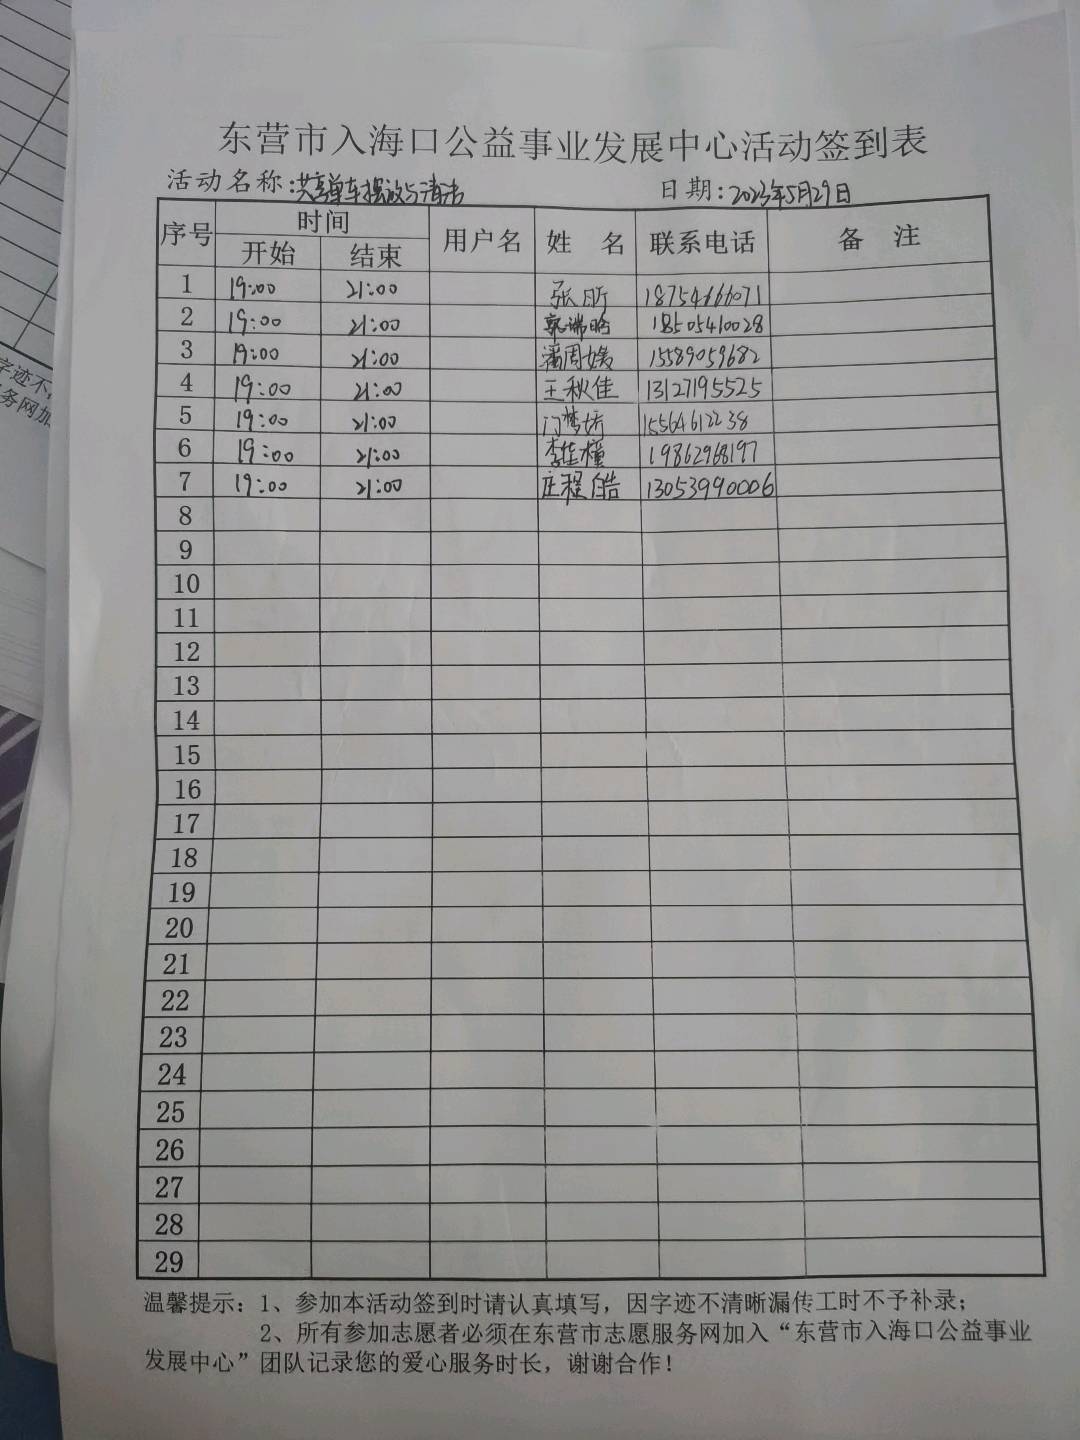 东营市入海口公益事业发展中心活动签到表
活动名称:共享单车摆放与清洁 日期:2023年5月29日
序号 时间 用户名 姓 名 联系电话 备 注
开始 结束
1 19:00 21:00 张昕 18754666071
2 19:00 21:00 郭端晗 18505410028
3 19:00 21:00 潘周媛 15589059682
4 19:00 21:00 王秋佳 13127195525
5 19:00 21:00 门梦娇 15564612238
6 19:00 21:00 李佳橦 19862968197
7 19:00 21:00 庄程皓 13053990006
8
9
10
11
12
13
14
15
16
17
18
19
20
21
22
23
24
25
26
27
28
29
温馨提示:1、参加本活动签到时请认真填写,因字迹不清晰漏传工时不予补录;
2、所有参加志愿者必须在东营市志愿服务网加入“东营市入海口公益事业
发展中心”团队记录您的爱心服务时长,谢谢合作!
字迹不
务网加